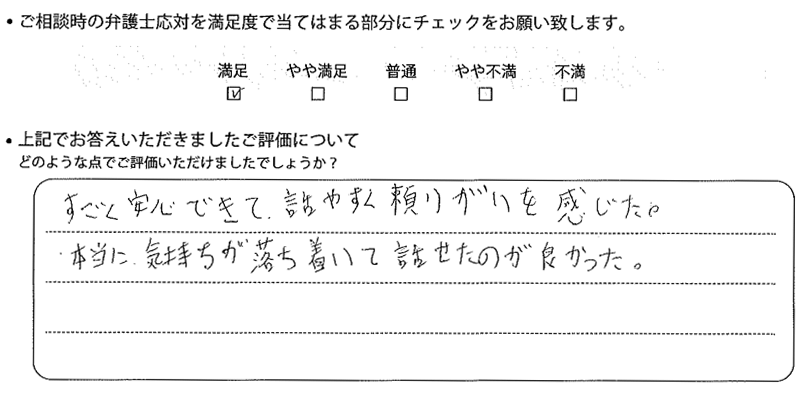 • ご相談時の弁護士応対を満足度で当てはまる部分にチェックをお願い致します。
満足 やや満足 普通 やや不満 不満
☑ ☐ ☐ ☐ ☐
• 上記でお答えいただきましたご評価について
どのような点でご評価いただけましたでしょうか？
すごく安心できて、話やすく頼りがいを感じた。
本当に気持ちが落ち着いて話せたのが良かった。